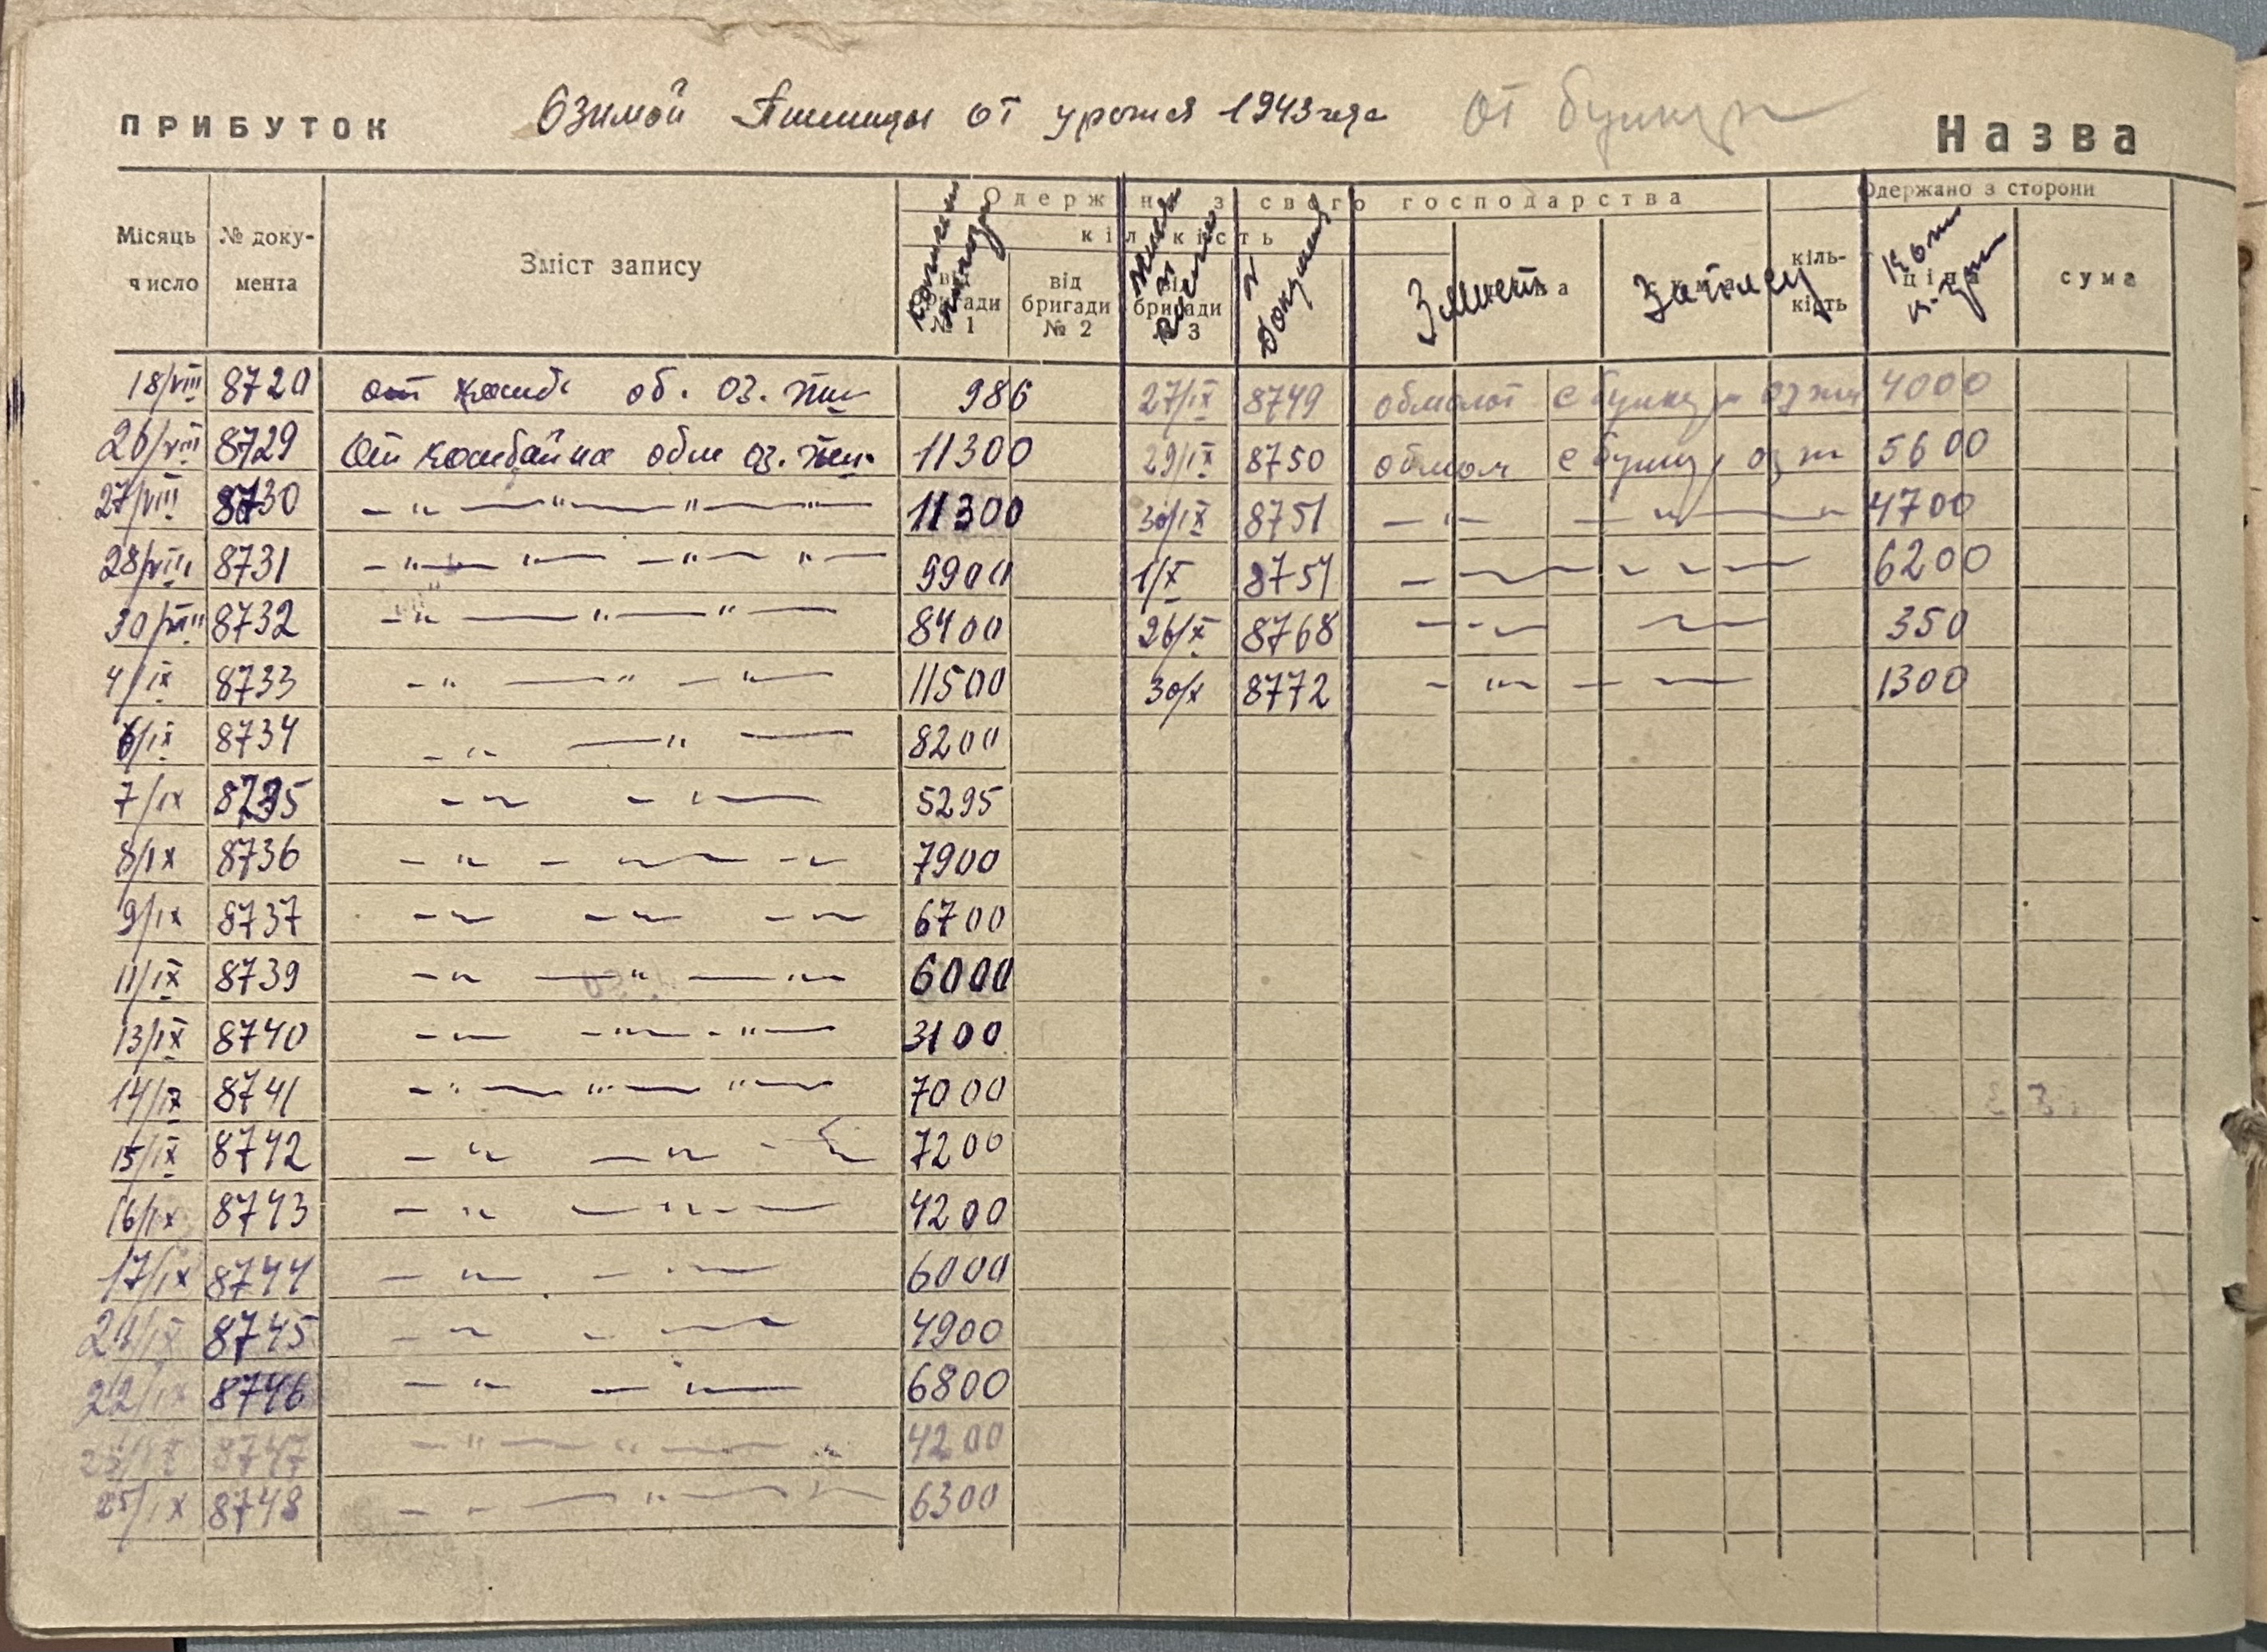 ПРИБУТОК Озимой Пшеницы от урожая 1943 года От бункера Назва
Місяць число № документа Зміст запису Одержано з свого господарства Одержано з сторони
кількість
від бригади № 1 від бригади № 2 від бригади № 3 № документа Зміст Запису кількість ціна сума
18/VIII 8720 от комб. об. оз. пш. 986 27/IX 8749 обмолот с бункера оз пш 4000
26/VIII 8729 От комбайна обм оз. пш. 11300 29/IX 8750 обмол с бункер оз п 5600
27/VIII 8730 —"— —"— —"— 11300 30/IX 8751 —"— —"— 4700
28/VIII 8731 —"— —"— —"— —"— 9900 1/X 8757 —"— 6200
30/VIII 8732 —"— —"— —"— 8400 26/X 8768 —"— —"— 350
4/IX 8733 —"— —"— —"— 11500 30/X 8772 —"— —"— 1300
6/IX 8734 —"— —"— 8200
7/IX 8735 —"— —"— 5295
8/IX 8736 —"— —"— —"— 7900
9/IX 8737 —"— —"— —"— 6700
11/IX 8739 —"— —"— —"— 6000
13/IX 8740 —"— —"— —"— 3100
14/IX 8741 —"— —"— —"— 7000
15/IX 8742 —"— —"— 7200
16/IX 8743 —"— —"— 4200
17/IX 8744 —"— —"— 6000
8745 —"— —"— 4900
22/IX 8746 —"— —"— 6800
8747 —"— —"— 4200
25/IX 8748 —"— —"— 6300